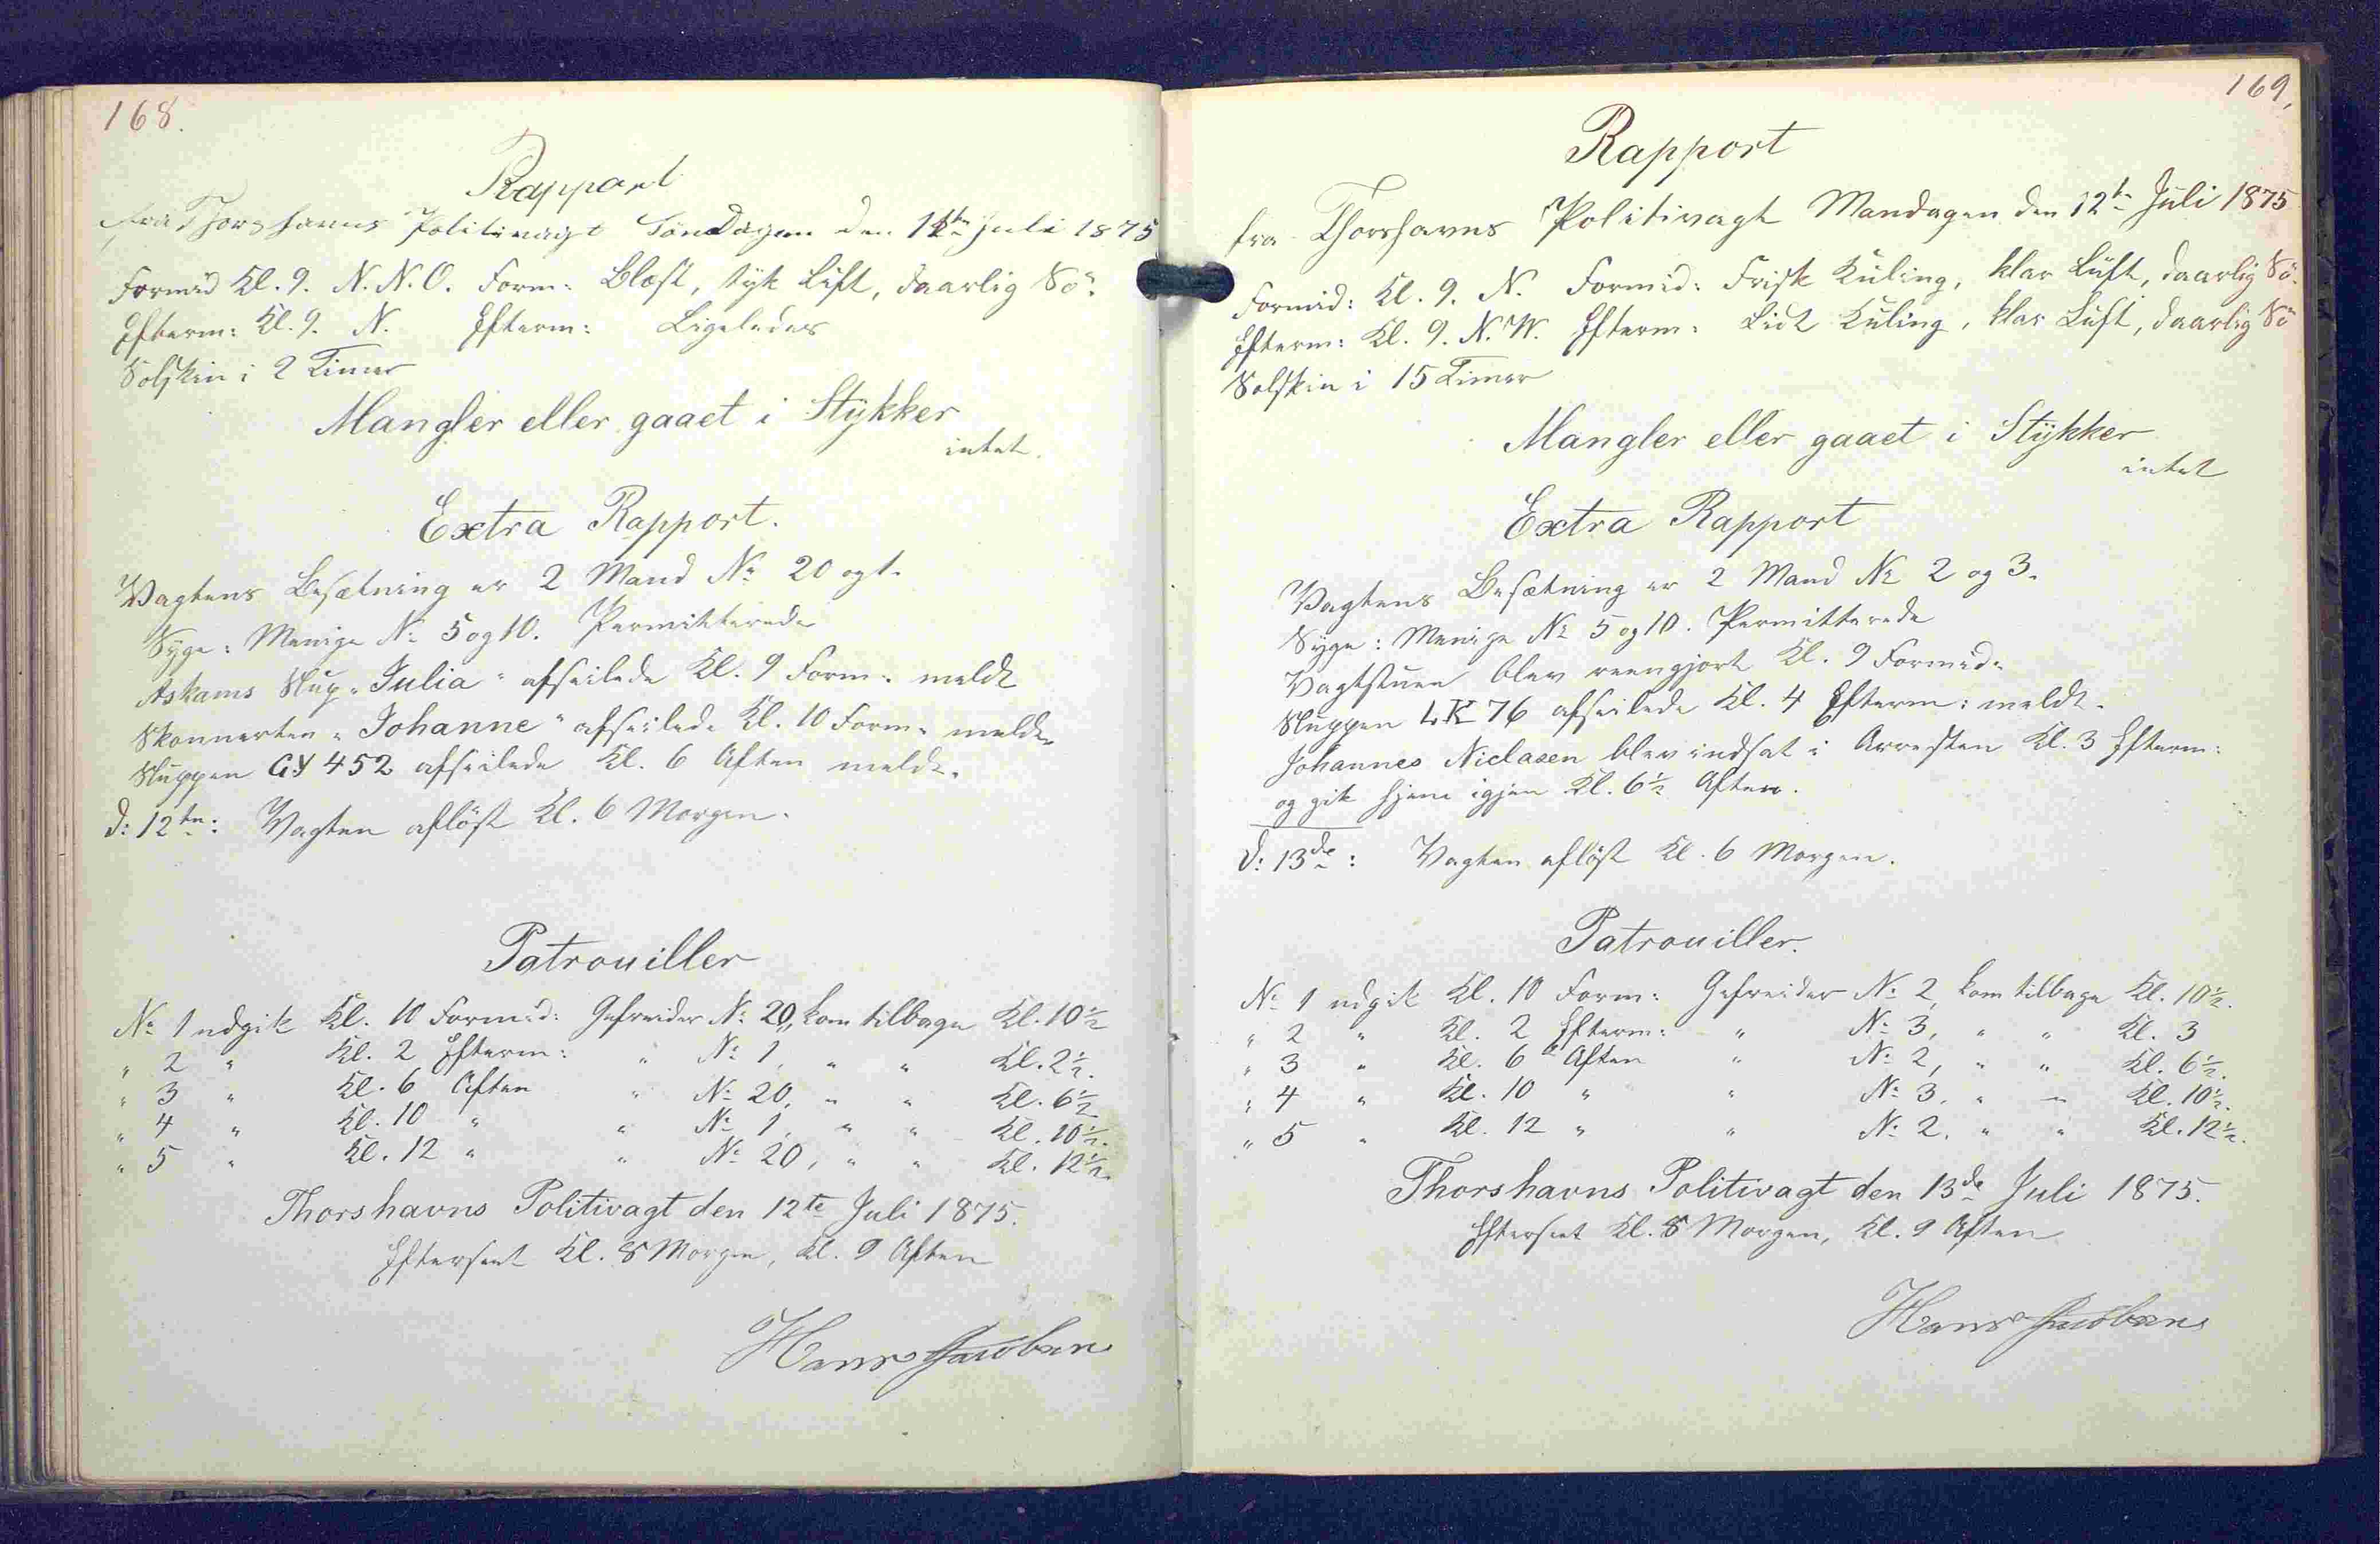 168.
Rapport
fra Thorshavns Politivagt Søndagen den 11te Juli 1875
Formid Kl. 9. N.N.O. Form: Blæst, tyk Luft, daarlig Sö.
Efterm: Kl. 9. N. Efterm: Ligeledes
Solskin i 2 Timer
Mangler eller gaaet i Stykker
intet.
Extra Rapport.
Vagtens Besætning er 2 Mand No 20 og 1.
Syge: Menige No 5 og 10. Permitterede
Askams Slup "Julia" afseilede Kl. 9 Form. meldt
Skonnerten "Johanne" afseilede Kl. 10 Form. meldt.
Sluppen GY 452 afseilede Kl. 6 Aften meldt.
d: 12te: Vagten aflöst Kl. 6 Morgen.
Patrouiller
No 1 udgik Kl. 10 Formid: Gefreider No 20, kom tilbage Kl. 10½
" 2 " Kl. 2 Efterm: " No 1, " " Kl. 2½.
" 3 " Kl. 6 Aften " No 20, " " Kl. 6½
" 4 " Kl. 10 " " No 1, " " Kl. 10½.
" 5 " Kl. 12 " " No 20, " " Kl. 12½.
Thorshavns Politivagt den 12te Juli 1875.
Efterseet Kl. 8 Morgen, Kl. 9 Aften
Hans Jacobsen
169,
Rapport
fra Thorshavns Politivagt Mandagen den 12te Juli 1875
Formid: Kl. 9. N. Formid: Frisk Kuling, klar Luft, daarlig Sö.
Efterm: Kl. 9. N.W. Efterm: Lidt Kuling, klar Luft, daarlig Sö
Solskin i 15 Timer
Mangler eller gaaet i Stykker
intet
Extra Rapport
Vagtens Besætning er 2 Mand No 2 og 3.
Syge: Menige No 5 og 10. Permitterede
Vagtstuen blev reengjort Kl. 9 Formid.
Sluppen LK 76 afseilede Kl. 4 Efterm: meldt.
Johannes Niclasen blev indsat i Arresten Kl. 3 Efterm:
og gik hjem igjen Kl. 6½ Aften.
d: 13de: Vagten aflöst Kl. 6 Morgen.
Patrouiller.
No 1 udgik Kl. 10 Form: Gefreider No 2, kom tilbage Kl. 10½.
" 2 " Kl. 2 Efterm: " No 3, " " Kl. 3
" 3 " Kl. 6 Aften " No 2, " " Kl. 6½.
" 4 " Kl. 10 " " No 3, " " Kl. 10½.
" 5 " Kl. 12 " " No 2, " " Kl. 12½.
Thorshavns Politivagt den 13de Juli 1875.
Efterseet Kl. 8 Morgen, Kl. 9 Aften
Hans Jacobsen